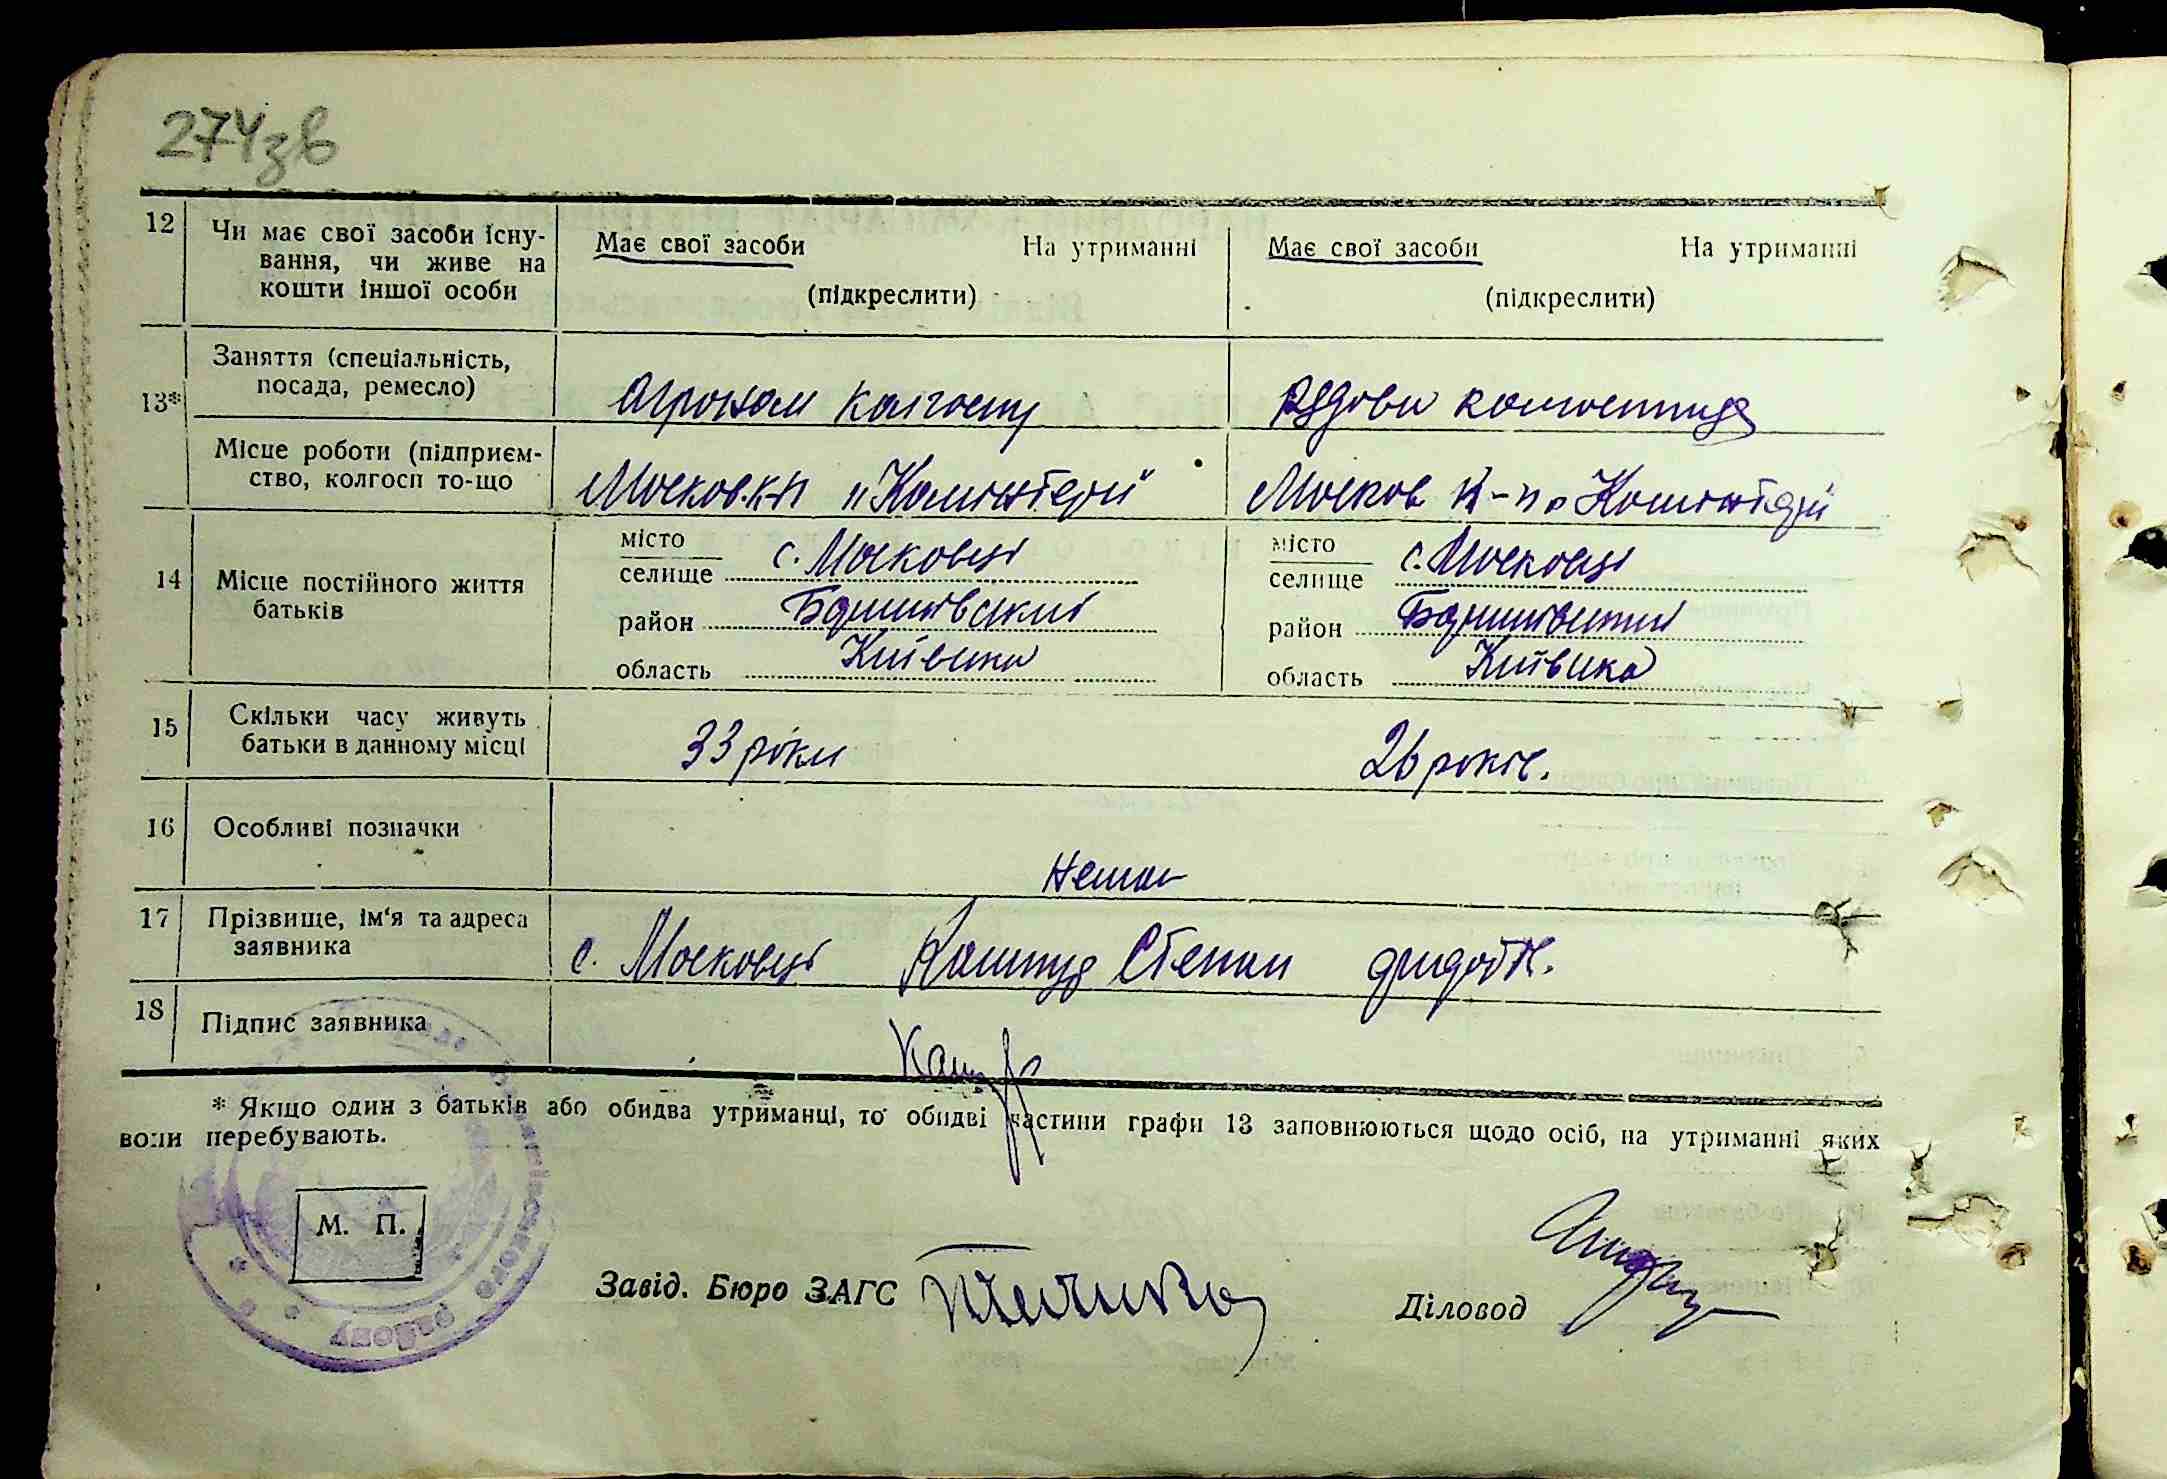 274зв
12 Чи має свої засоби існу-
вання, чи живе на
кошти іншої особи
Має свої засоби На утриманні
(підкреслити)
Має свої засоби На утриманні
(підкреслити)
13* Заняття (спеціальність,
посада, ремесло)
Агроном колгоспу
Рядова колгоспниця
Місце роботи (підприєм-
ство, колгосп то-що
Москов. к-п „Комінтерн"
Москов к-п „Комінтерн
14 Місце постійного життя
батьків
місто
селище с. Московці
район Баришівський
область Київська
місто
селище с. Московці
район Баришівський
область Київська
15 Скільки часу живуть
батьки в данному місці
33 роки
26 років.
16 Особливі позначки
Немає
17 Прізвище, ім'я та адреса
заявника
с. Московці Степан
18 Підпис заявника
* Якщо один з батьків або обидва утриманці, то обидві частини графи 13 заповнюються щодо осіб, на утриманні яких
вони перебувають.
М. П.
району
Завід. Бюро ЗАГС
Діловод